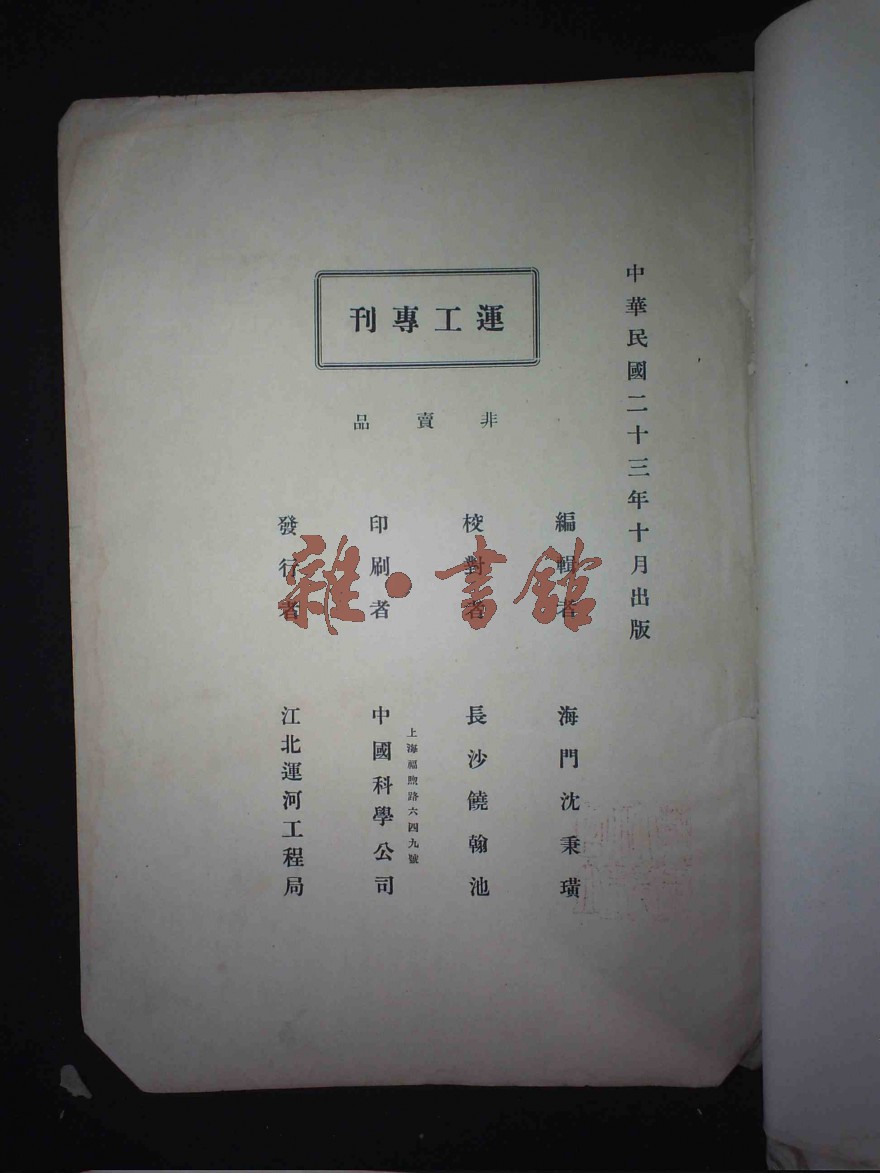 中華民國二十三年十月出版
運工專刊
非賣品
編輯者 海門沈秉璜
校對者 長沙饒翰池
印刷者 中國科學公司
上海福煦路六四九號
發行者 江北運河工程局
雜·書館